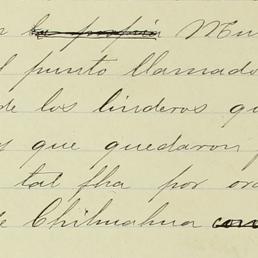 la propia Mu
punto llamado
de los linderos qu
que quedaron
tal fha por or
de Chihuahua con